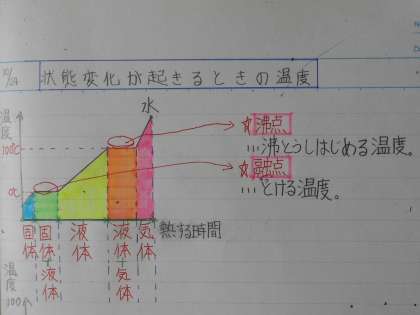 状態変化が起きるときの温度
水
温度
100℃
☆沸点
…沸とうしはじめる温度。
0℃
☆融点
…とける温度。
固体
固体+液体
液体
液体+気体
気体
熱する時間
温度
100